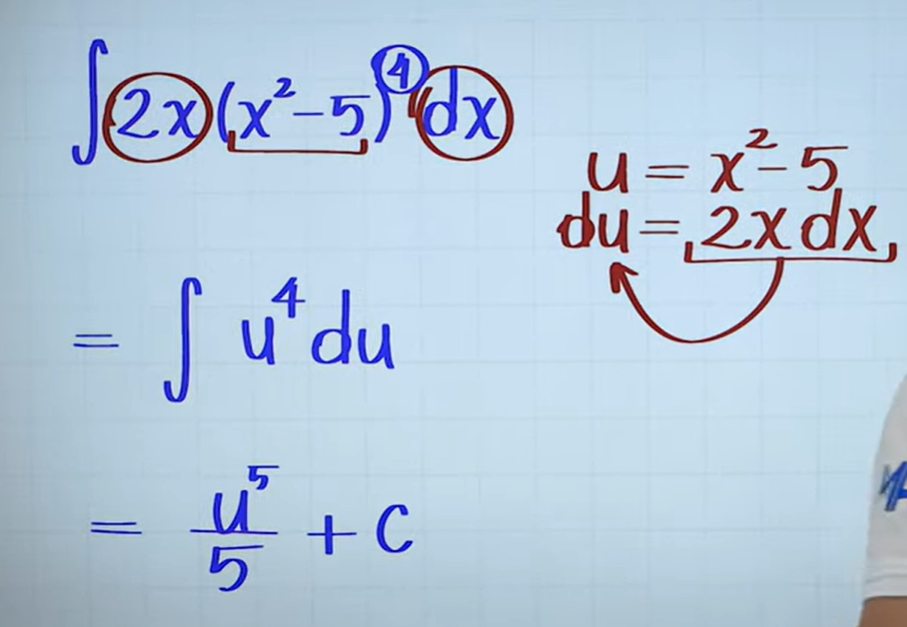 ∫ 2x (x² - 5)⁴ dx
u = x² - 5
du = 2x dx
= ∫ u⁴ du
= u⁵/5 + C